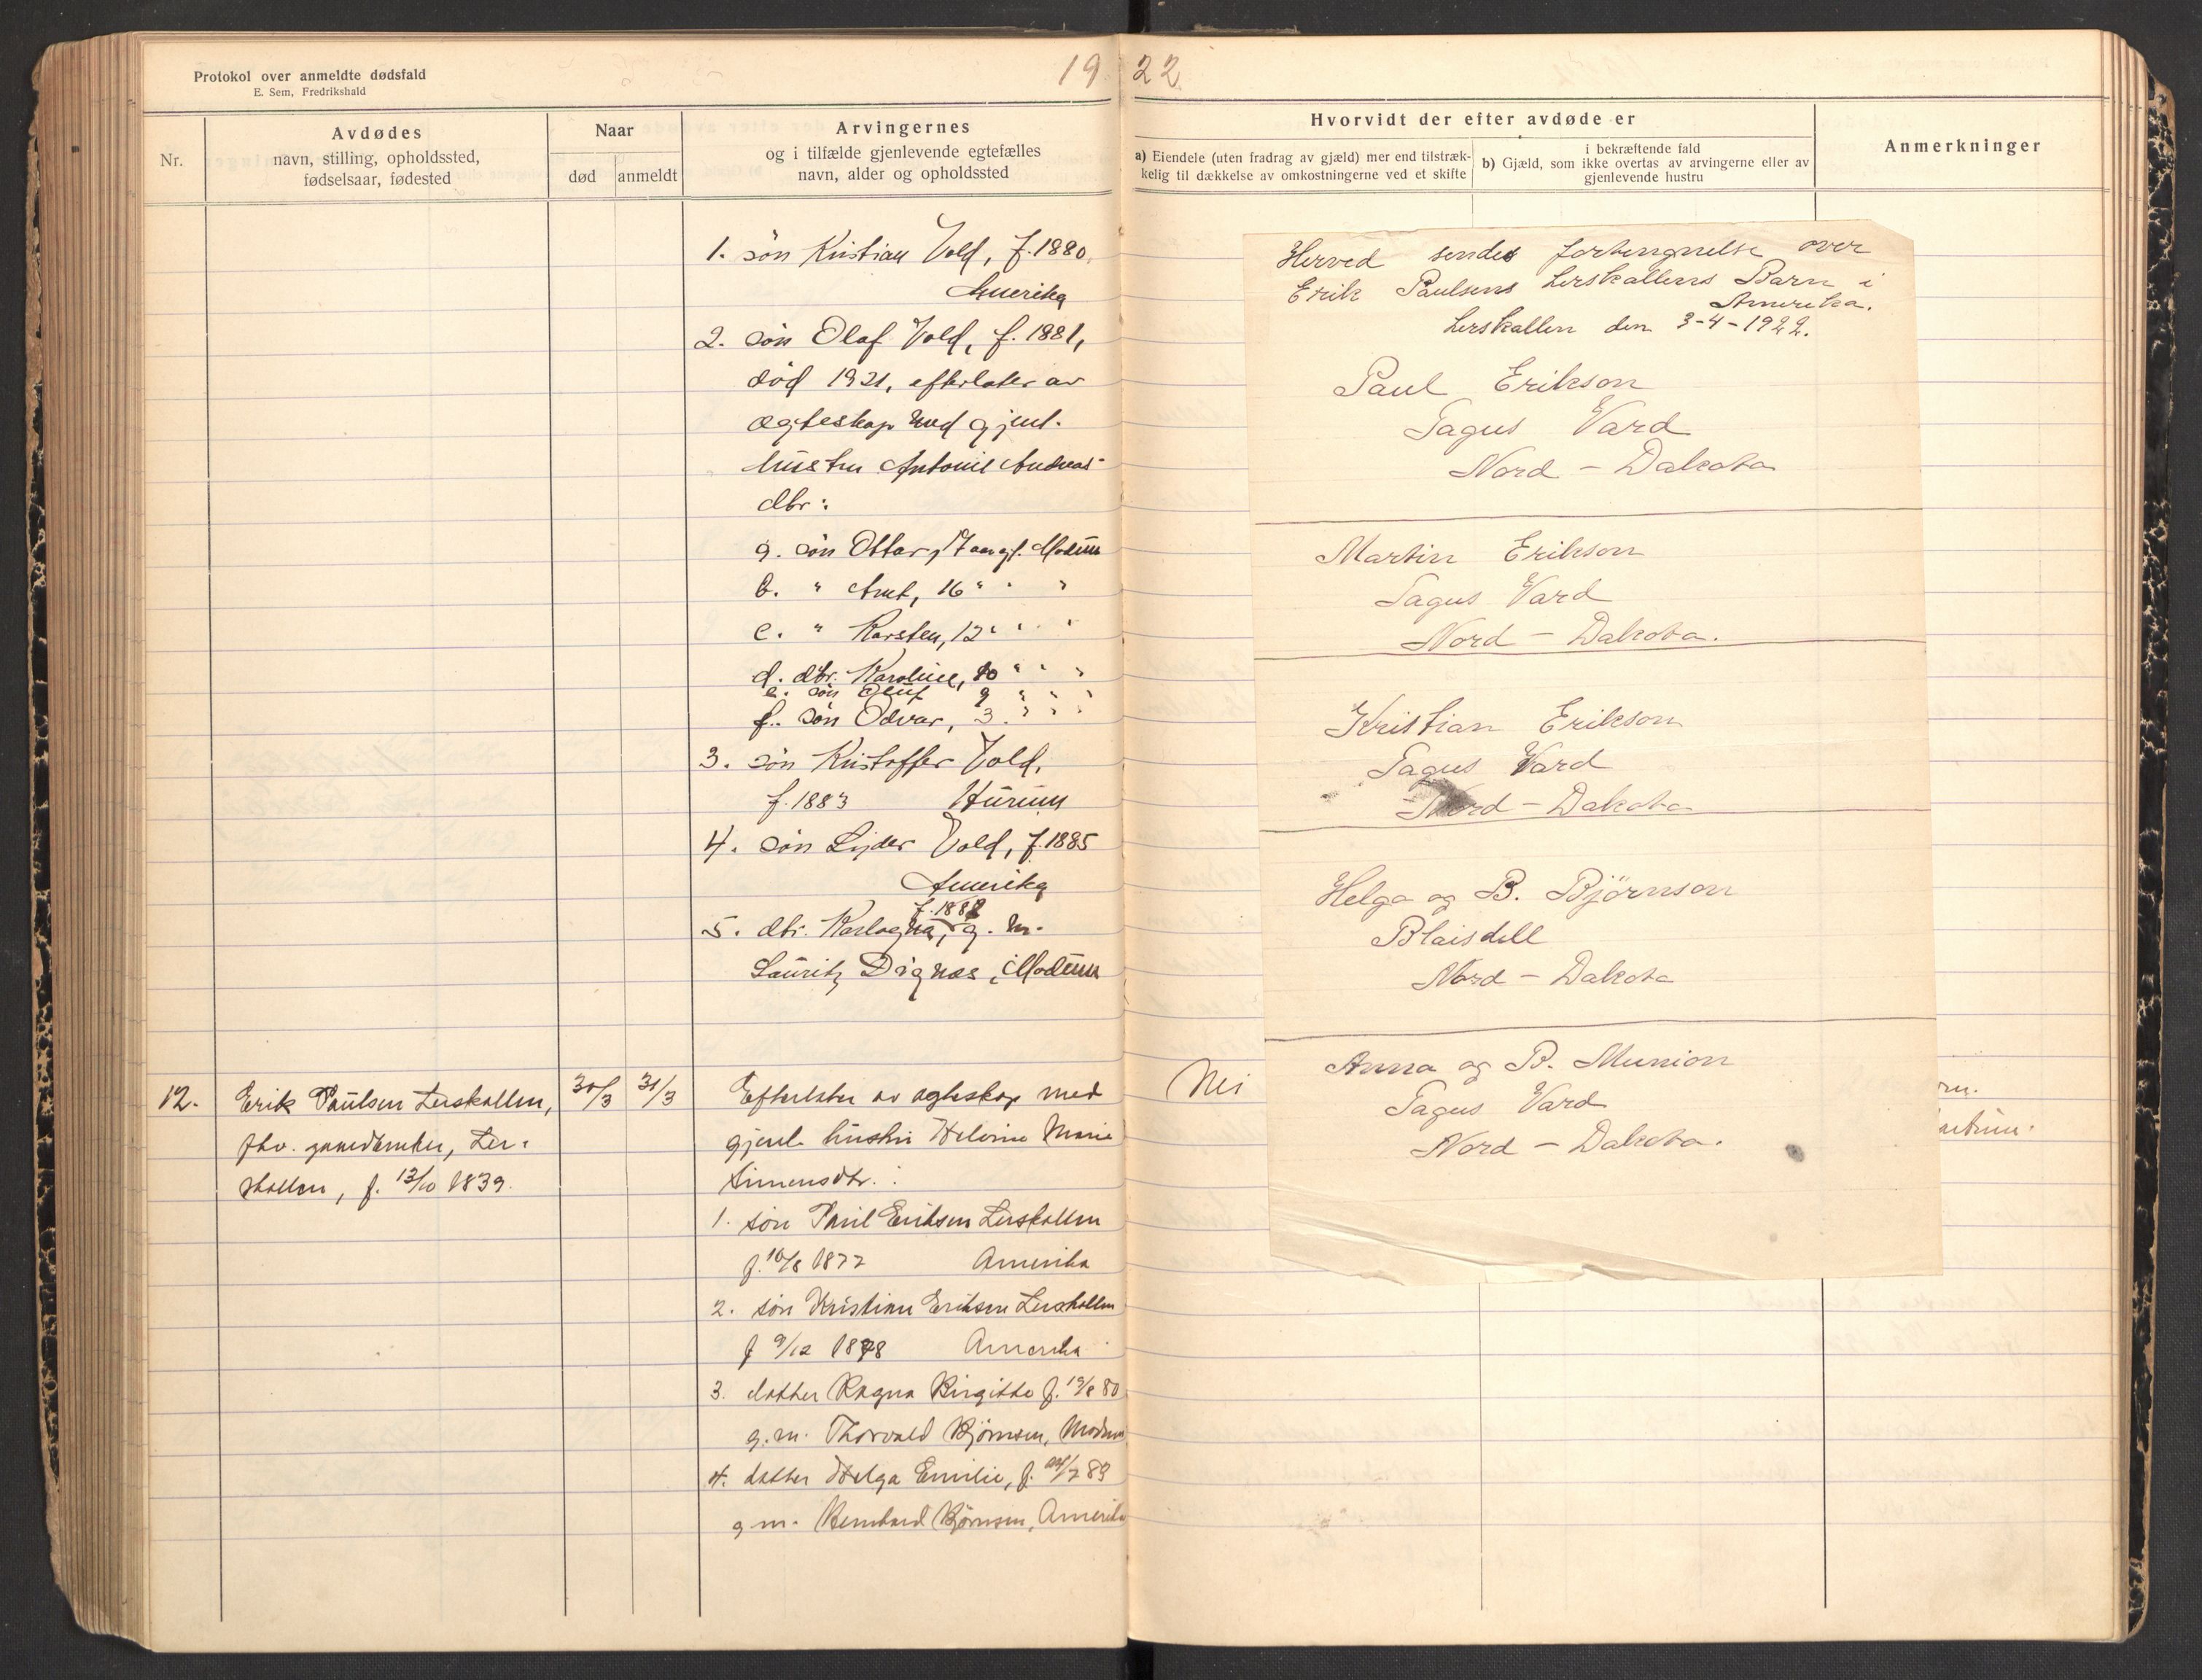 Protokol over anmeldte dødsfald
E. Sem, Fredrikshald
19 22
Nr.
Avdødes
navn, stilling, opholdssted,
fødselsaar, fødested
Naar
død
anmeldt
Arvingernes
og i tilfælde gjenlevende egtefælles
navn, alder og opholdssted
Hvorvidt der efter avdøde er
a) Eiendele (uten fradrag av gjæld) mer end tilstræk-
kelig til dækkelse av omkostningerne ved et skifte
i bekræftende fald
b) Gjæld, som ikke overtas av arvingerne eller av
gjenlevende hustru
Anmerkninger
1. søn Kristian Vold, f. 1880,
Amerika
2. søn Olaf Vold, f. 1881,
død 1921, efterlater av
ægteskap med gjenl.
hustru Antonie Andreas-
dtr:
a. søn Ottar, 17 aar gl. Modum
b. " Arnt, 16 " " "
c. " Karsten, 12 " " "
d. dtr. Karoline, 10 " " "
e. søn Oluf 9 " " "
f. søn Odvar, 3. " " "
3. søn Kristoffer Vold,
f. 1883 Hurum
4. søn Lyder Vold, f. 1885
Amerika
f. 1888
5. dtr. Karlagna, g. m.
Lauritz Dignes, Modum
12.
Erik Paulsen Lerskallen,
fhv. gaardbruker, Ler-
skallen, f. 13/10 1839.
30/3
31/3
Efterlater av egteskap med
gjenl. hustru Helene Marie
Simensdtr. :
1. søn Paul Eriksen Lerskallen
f. 10/8 1877 Amerika
2. søn Kristian Eriksen Lerskallen
f 9/12 1878 Amerika
3. datter Ragna Birgitte f. 19/8 80
g. m. Thorvald Bjørnsen, Modum
4. datter Helga Emilie, f. 7 89
g m. Bernhard Bjørnsen, Amerika
Nei
Herved sendes fortengnelse over
Erik Paulsens Lerskallens Barn i
Amerika.
Lerskallen den 3-4-1922.
Paul Erikson
Tagus Vard
Nord - Dakota
Martin Erikson
Tagus Vard
Nord - Dakota.
Kristian Erikson
Tagus Vard
Nord - Dakota
Helga og B. Björnson
Blaisdell
Nord - Dakota
Anna og B. Munion
Tagus Vard
Nord - Dakota.